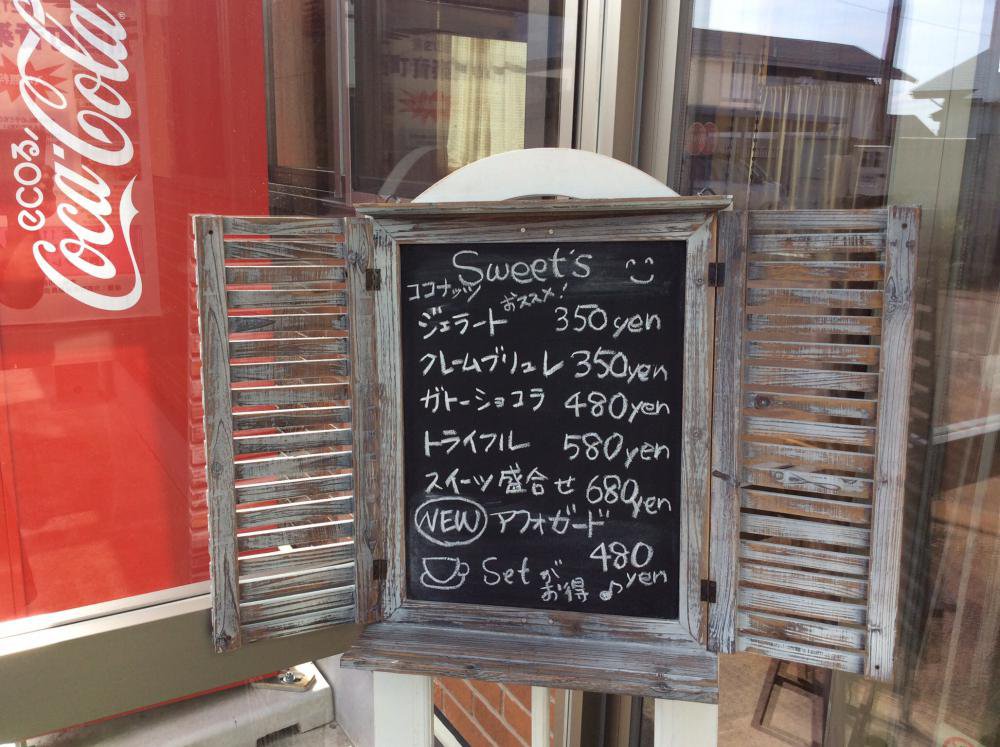 ecoる/
Coca-Cola®
Sweet's
ココナッツ
おススメ!
ジェラート 350yen
クレームブリュレ 350yen
ガトーショコラ 480yen
トライフル 580yen
スイーツ盛合せ 680yen
NEW アフォガード
480
yen
Set が
お得♪